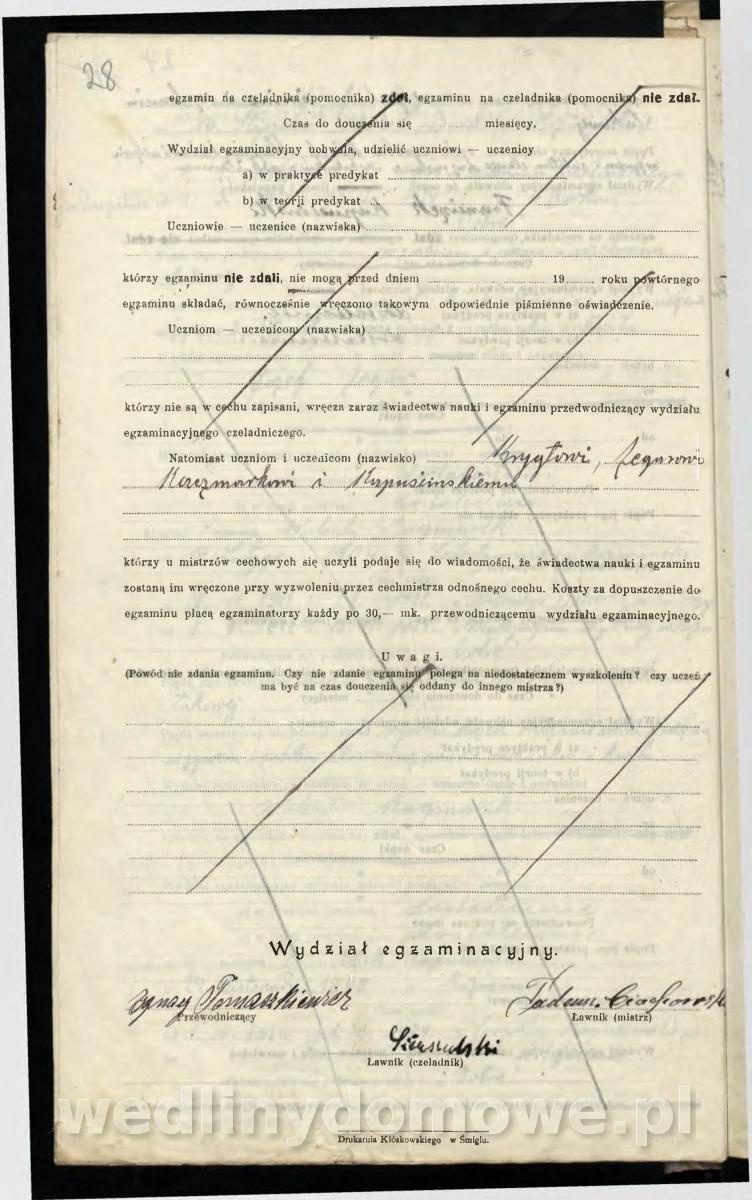 28
egzamin na czeladnika (pomocnika) zdał, egzaminu na czeladnika (pomocnika) nie zdał.
Czas do douczenia się miesięcy.
Wydział egzaminacyjny uchwala, udzielić uczniowi — uczenicy
a) w praktyce predykat
b) w teorji predykat
Uczniowie — uczenice (nazwiska)
którzy egzaminu nie zdali, nie mogą przed dniem 19 roku powtórnego
egzaminu składać, równocześnie wręczono takowym odpowiednie piśmienne oświadczenie.
Uczniom — uczenicom (nazwiska)
którzy nie są w cechu zapisani, wręcza zaraz świadectwa nauki i egzaminu przedwodniczący wydziału
egzaminacyjnego czeladniczego.
Natomiast uczniom i uczenicom (nazwisko)
Kaczmarkowi i
którzy u mistrzów cechowych się uczyli podaje się do wiadomości, że świadectwa nauki i egzaminu
zostaną im wręczone przy wyzwoleniu przez cechmistrza odnośnego cechu. Koszty za dopuszczenie do
egzaminu płacą egzaminatorzy każdy po 30,— mk. przewodniczącemu wydziału egzaminacyjnego.
Uwagi.
(Powód nie zdania egzaminu. Czy nie zdanie egzaminu polega na niedostatecznem wyszkoleniu? czy uczeń
ma być na czas douczenia się oddany do innego mistrza?)
Wydział egzaminacyjny.
Ignacy Tomaszkiewicz
Przewodniczący
Ławnik (mistrz)
Ławnik (czeladnik)
wedlinydomowe.pl
Drukarnia Klóskowskiego w Śmiglu.